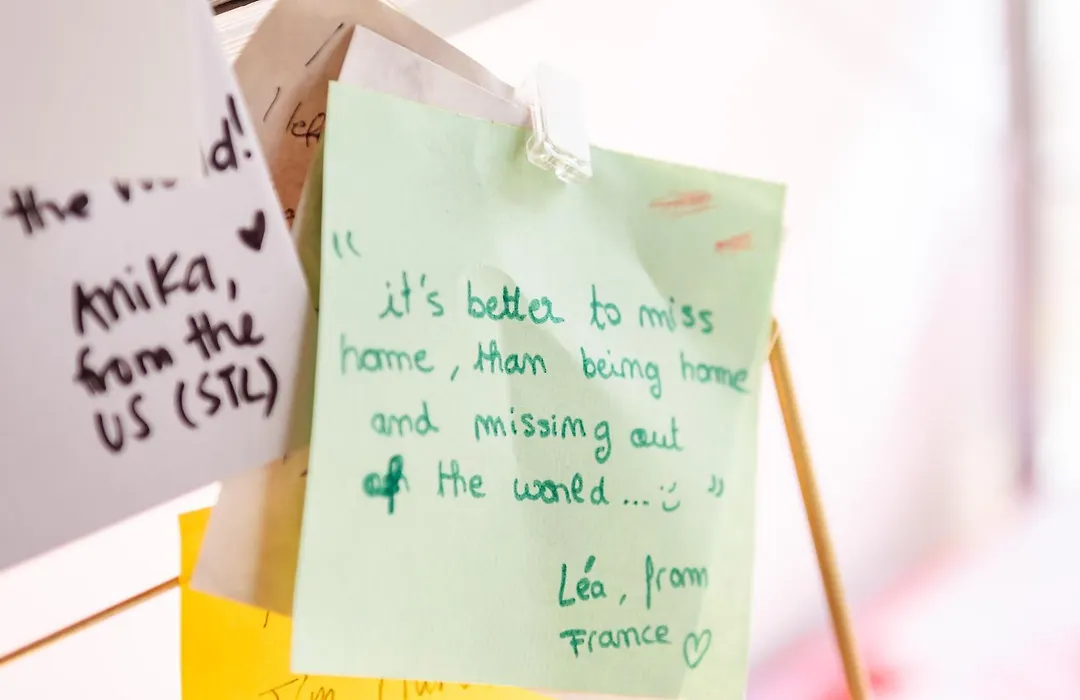 the
d!
Anika,
from the
US (STL)
left
"
it's better to miss
home, than being home
and missing out
of the world... :) "
Léa, from
France ♡
I'm